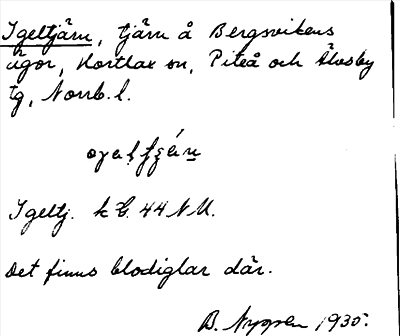 Igeltjärn, tjärn å Bergsvikens
ägor, Hortlax sn, Piteå och Älvsby
tg, Norrb. l.
Igeltj. k G. 44 NU.
Det finns blodiglar där.
B. Nygren 1935.